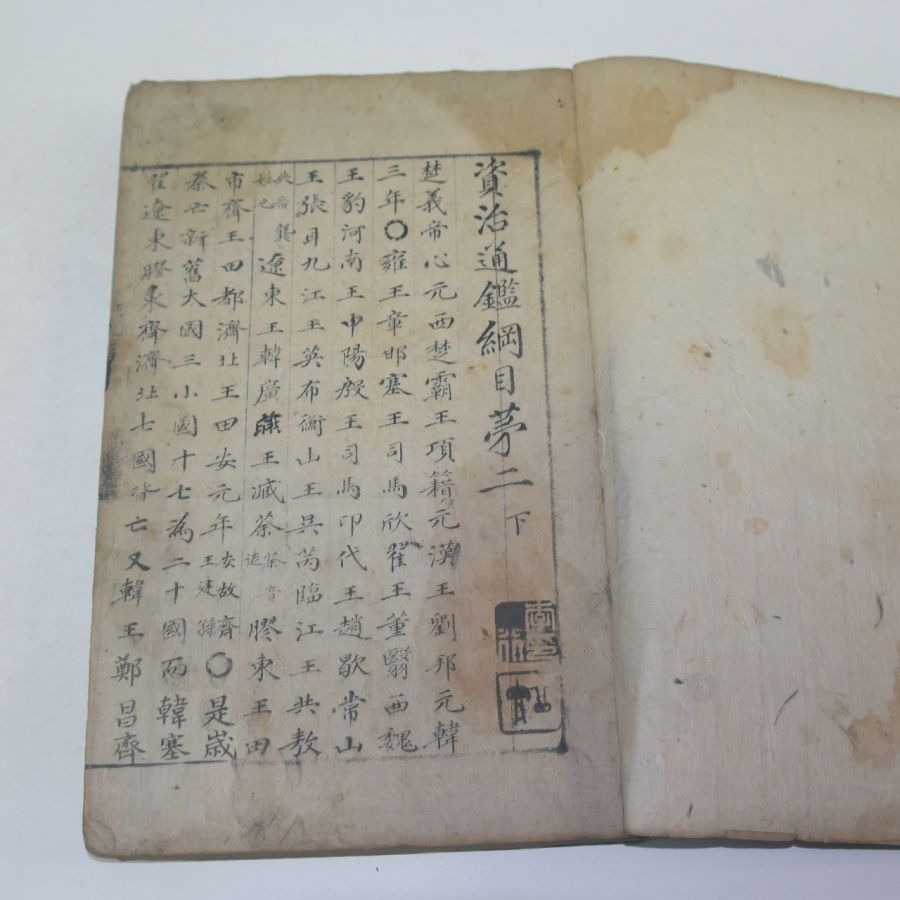 資治通鑑綱目苐二 下
楚義帝心元西楚霸王項籍元漢王劉邦元韓
三年〇雍王章邯塞王司馬欣翟王董翳西魏
王豹河南王申陽殷王司馬卬代王趙歇常山
王張耳九江王英布衡山王吳芮臨江王共敖
共音龔姓也遼東王韓廣燕王臧荼荼音途膠東王田
市齊王田都濟北王田安元年安故齊王建孫〇是歲
秦亡新舊大國三小國十七為二十國而韓塞
翟遼東膠東齊濟北七國皆亡又韓王鄭昌齊